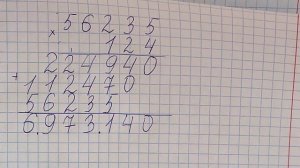 56235
× 124
224940
+ 112470
56235
6.973.140